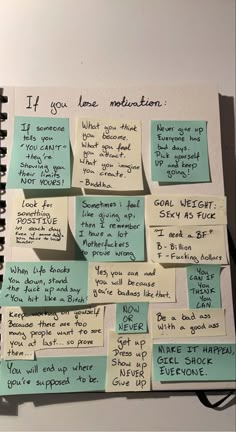 If you lose motivation:
If someone
tells you
"YOU CAN'T"
they're
showing you
their limits
NOT YOURS!
What you think
you become,
What you feel
you attract.
What you imagine
you create.
- Buddha
Never give up
Everyone has
bad days.
Pick yourself
UP and keep
going!
Look for
something
POSITIVE
in each day
even if some days
Sometimes I feel
like giving up,
then I remember
I have a lot
of Motherfuckers
to prove WRONG
GOAL WEIGHT:
SEXY AS FUCK
"I need a BF"
B - Billion
F - Fucking dollars
When life knocks
you down, stand
the fuck up and say
"You hit like a Bitch"
Yes, you can and
you will because
you're badass like that!
YOU
CAN IF
YOU
THINK
YOU
CAN
Keep working on yourself
Because there are too
many people want to see
you at last... so prove
them !!!
NOW
OR
NEVER
Be a bad ass
With a good ass
Get up
Dress up
Show up
NEVER
Give Up
MAKE IT HAPPEN,
GIRL. SHOCK
EVERYONE.
You will end up where
you're supposed to be.